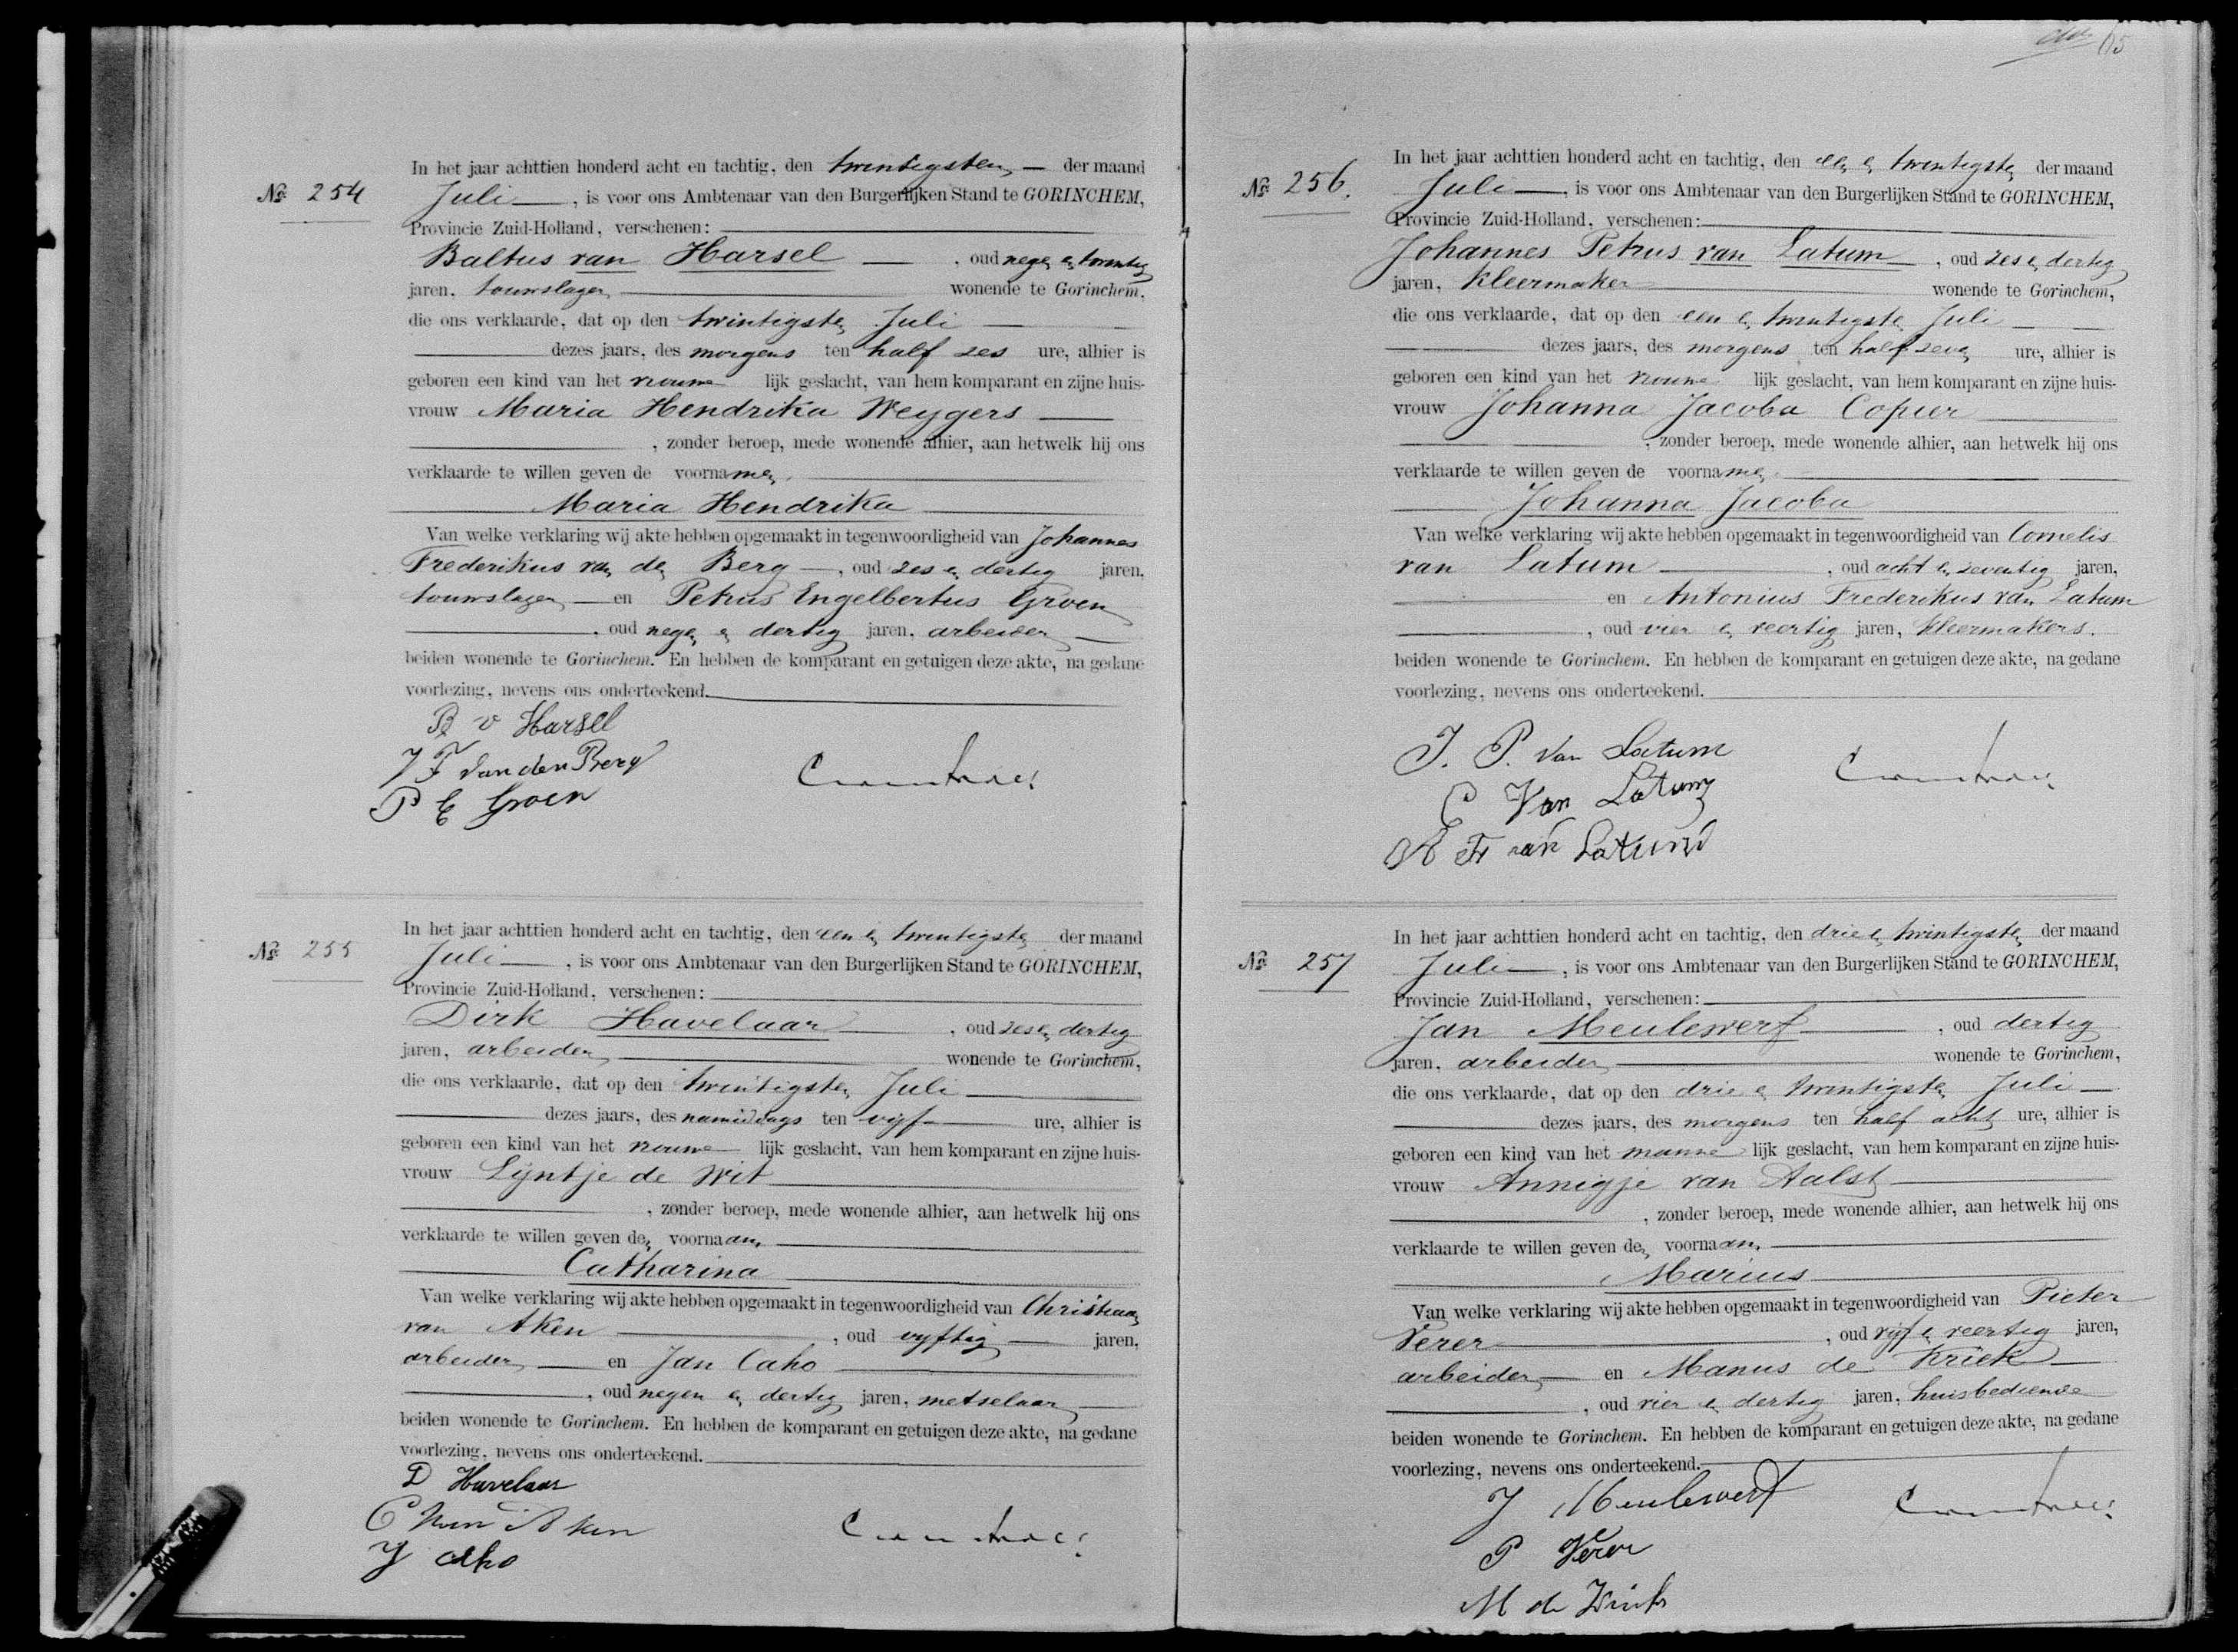 No 254
In het jaar achttien honderd acht en tachtig, den twintigsten der maand
Juli, is voor ons Ambtenaar van den Burgerlijken Stand te GORINCHEM,
Provincie Zuid-Holland, verschenen:
Baltus van Harsel, oud negen en twintig
jaren, touwslager, wonende te Gorinchem,
die ons verklaarde, dat op den twintigsten Juli
dezes jaars, des morgens ten half zes ure, alhier is
geboren een kind van het vrouwe lijk geslacht, van hem komparant en zijne huis-
vrouw Maria Hendrika Weygers
, zonder beroep, mede wonende alhier, aan hetwelk hij ons
verklaarde te willen geven de voornamen
Maria Hendrika
Van welke verklaring wij akte hebben opgemaakt in tegenwoordigheid van Johannes
Frederikus van den Berg, oud zes en dertig jaren,
touwslager en Petrus Engelbertus Groen
, oud negen en dertig jaren, arbeider
beiden wonende te Gorinchem. En hebben de komparant en getuigen deze akte, na gedane
voorlezing, nevens ons onderteekend.
B v Harsel
J F van den Berg
P E Groen
No 255
In het jaar achttien honderd acht en tachtig, den een en twintigsten der maand
Juli, is voor ons Ambtenaar van den Burgerlijken Stand te GORINCHEM,
Provincie Zuid-Holland, verschenen:
Dirk Havelaar, oud zes en dertig
jaren, arbeider, wonende te Gorinchem,
die ons verklaarde, dat op den twintigsten Juli
dezes jaars, des namiddags ten vijf ure, alhier is
geboren een kind van het vrouwe lijk geslacht, van hem komparant en zijne huis-
vrouw Lijntje de Wit
, zonder beroep, mede wonende alhier, aan hetwelk hij ons
verklaarde te willen geven den voornaam
Catharina
Van welke verklaring wij akte hebben opgemaakt in tegenwoordigheid van Christiaan
van Aken, oud vyftig jaren,
arbeider en Jan Caho
, oud negen en dertig jaren, metselaar
beiden wonende te Gorinchem. En hebben de komparant en getuigen deze akte, na gedane
voorlezing, nevens ons onderteekend.
D Havelaar
C van Aken
J caho
05
No 256.
In het jaar achttien honderd acht en tachtig, den een en twintigsten der maand
Juli, is voor ons Ambtenaar van den Burgerlijken Stand te GORINCHEM,
Provincie Zuid-Holland, verschenen:
Johannes Petrus van Latum, oud zes en dertig
jaren, kleermaker wonende te Gorinchem,
die ons verklaarde, dat op den een en twintigsten Juli
dezes jaars, des morgens ten half zeven ure, alhier is
geboren een kind van het vrouwe lijk geslacht, van hem komparant en zijne huis-
vrouw Johanna Jacoba Copier
, zonder beroep, mede wonende alhier, aan hetwelk hij ons
verklaarde te willen geven de voornamen
Johanna Jacoba
Van welke verklaring wij akte hebben opgemaakt in tegenwoordigheid van Cornelis
van Latum, oud acht en zeventig jaren,
en Antonius Frederikus van Latum
, oud vier en veertig jaren, kleermakers.
beiden wonende te Gorinchem. En hebben de komparant en getuigen deze akte, na gedane
voorlezing, nevens ons onderteekend.
J. P. van Latum
C Van Latum
A F van Latum
No 257
In het jaar achttien honderd acht en tachtig, den drie en twintigsten der maand
Juli, is voor ons Ambtenaar van den Burgerlijken Stand te GORINCHEM,
Provincie Zuid-Holland, verschenen:
Jan Meulewerf, oud dertig
jaren, arbeider wonende te Gorinchem,
die ons verklaarde, dat op den drie en twintigsten Juli
dezes jaars, des morgens ten half acht ure, alhier is
geboren een kind van het manne lijk geslacht, van hem komparant en zijne huis-
vrouw Annigje van Aalst
, zonder beroep, mede wonende alhier, aan hetwelk hij ons
verklaarde te willen geven den voornaam
Marius
Van welke verklaring wij akte hebben opgemaakt in tegenwoordigheid van Pieter
Verer, oud vijf en veertig jaren,
arbeider en Manus de Kriek
, oud vier en dertig jaren, huisbediende
beiden wonende te Gorinchem. En hebben de komparant en getuigen deze akte, na gedane
voorlezing, nevens ons onderteekend.
J Meulewerf
P Verer
M de Kriek